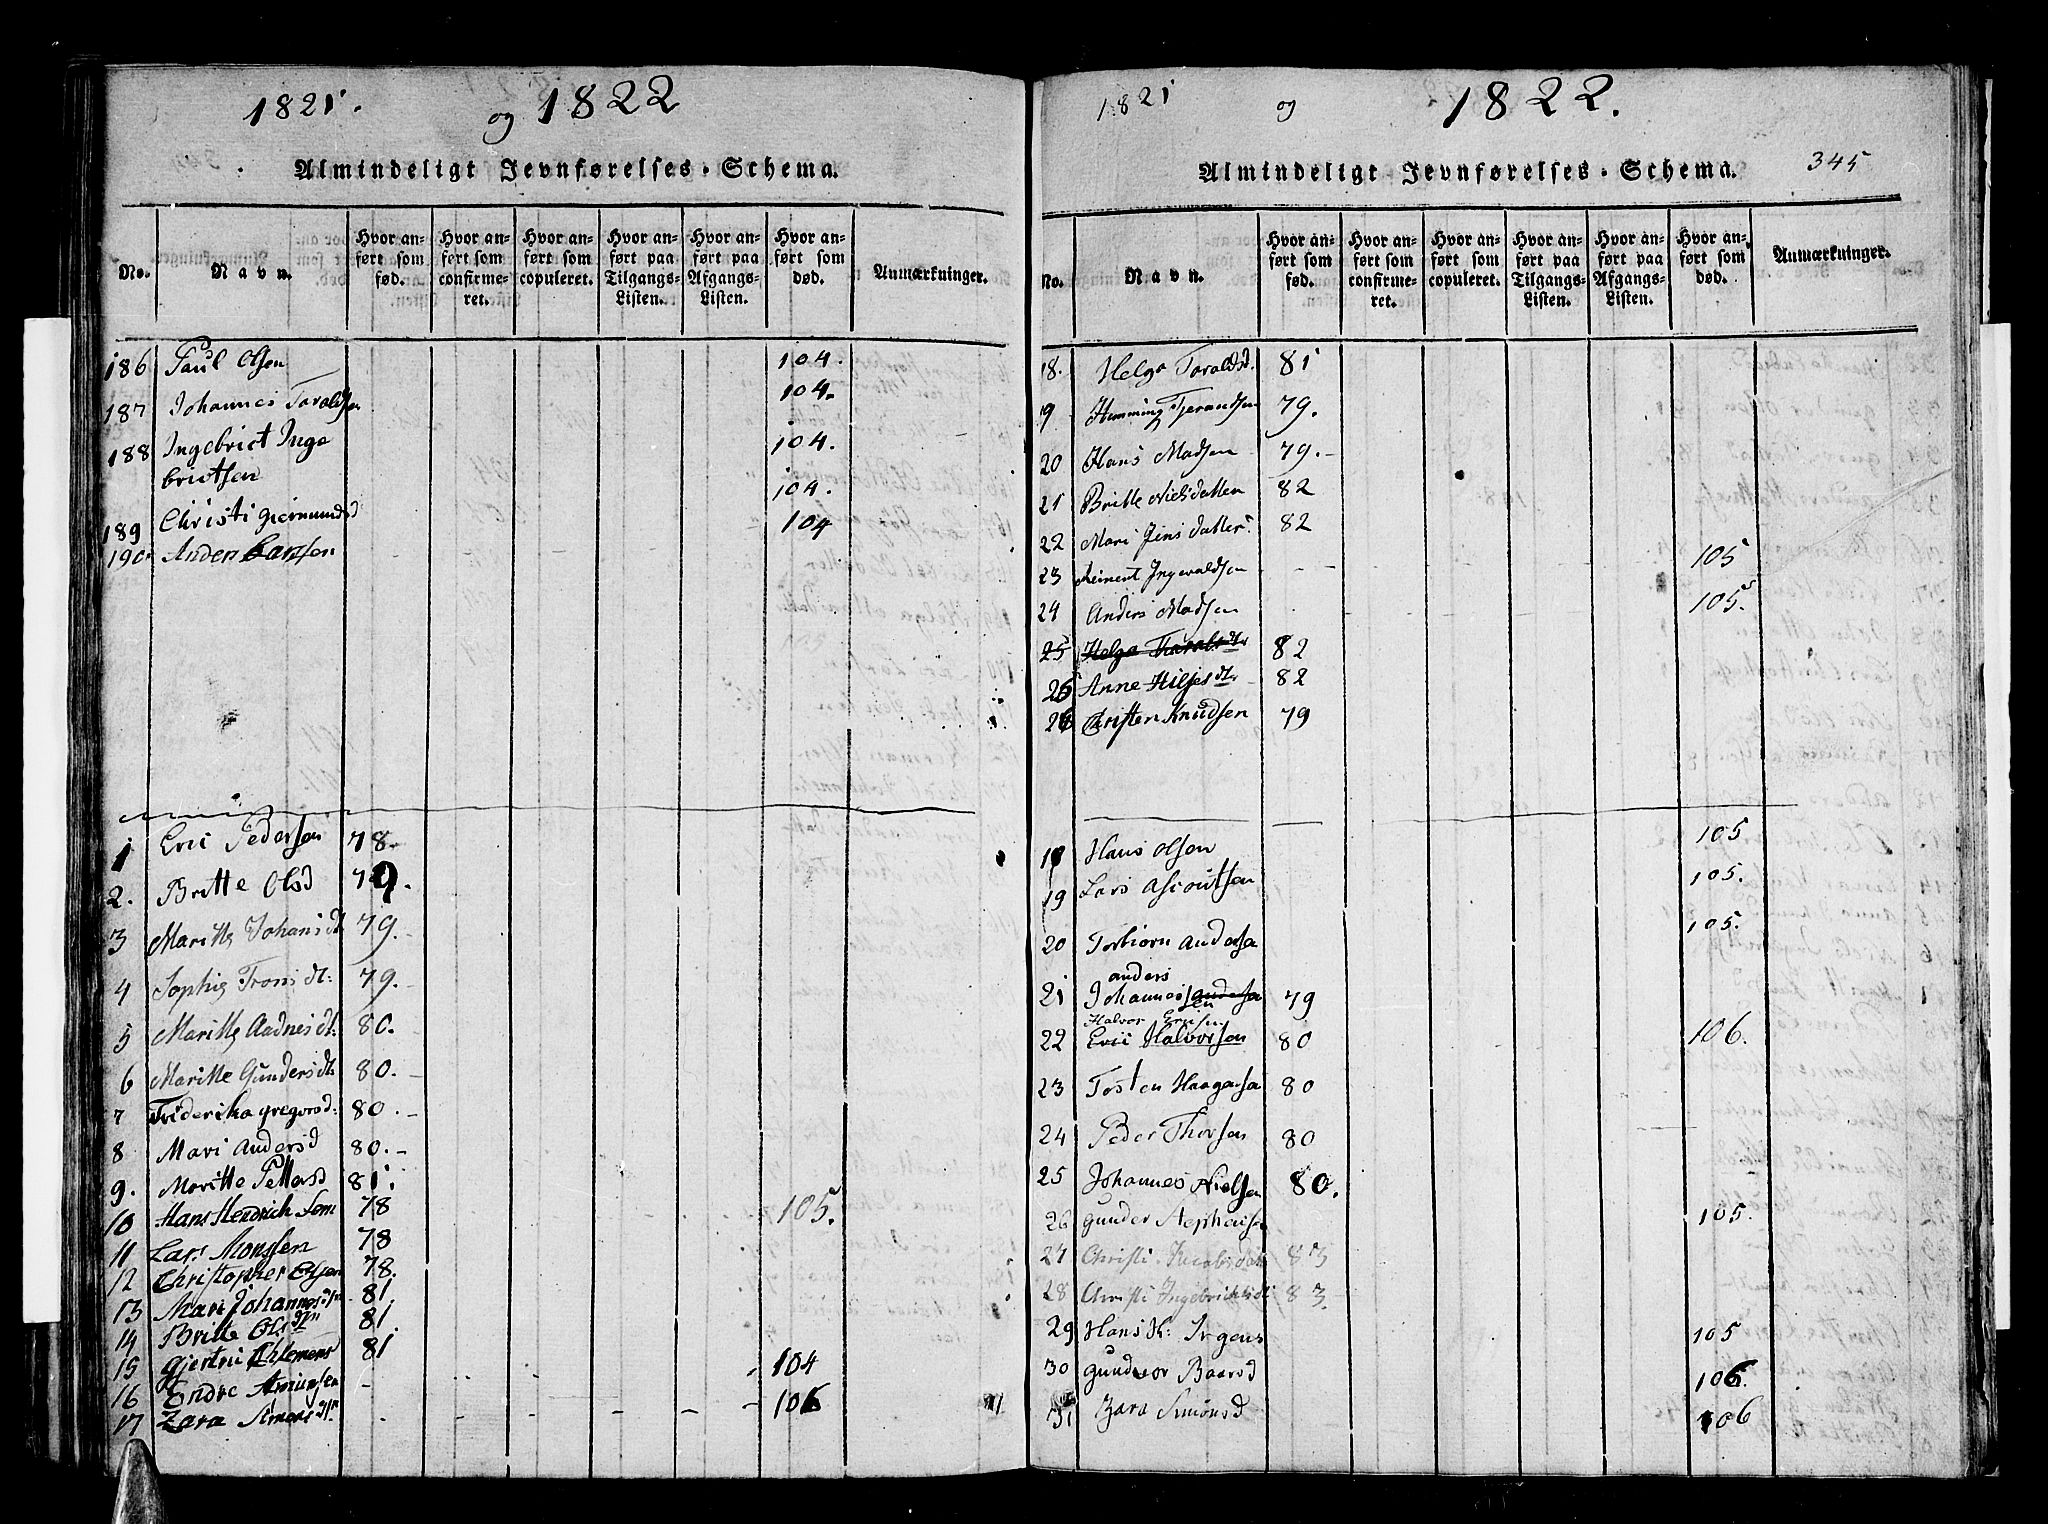 1821. og 1822
Almindeligt Jevnførelses-Schema.
No. Navn. Hvor anført som fød. Hvor anført som confirmeret. Hvor anført som copuleret. Hvor anført paa Tilgangs-Listen. Hvor anført paa Afgangs-Listen. Hvor anført som død. Anmærkninger.
186 Paul Olsen 104.
187 Johannes Taraldsen 104.
188 Ingebrict Inge 104.
brictsen 104.
189 Christi giermundsd 104
190 Anders Larssen
1 Eric Pedersen 78.
2. Britte Olsd 79.
3 Maritte Johansdt 79.
4 Sophie Tronsdt: 79.
5 Maritte Aadnesdt. 80.
6 Maritte Gundersdt. 80.
7 Friderika gregorsd: 80.
8 Mari Andersd 80.
9. Maritte Pettersd 81.
10 Hans Hendrich 78 105.
11 Lars Monssen 78
12 Christopher Olsen 78.
13 Mari Johannesd 81.
14 Britte Ols 81.
15 Gjertru Clemens 81 104
16 Endre Amunsen
17 Zara Simons 106
1821 og 1822.
Almindeligt Jevnførelses-Schema. 345
No. Navn. Hvor anført som fød. Hvor anført som confirmeret. Hvor anført som copuleret. Hvor anført paa Tilgangs-Listen. Hvor anført paa Afgangs-Listen. Hvor anført som død. Anmærkninger.
18. Helga Taraldsd. 81
19 Hemming Tjerandsen 79.
20 Hans Madsen 79.
21 Britte Nielsdatter 82
22 Mari Jens datter 82
23 Reinert Ingevaldsen 105
24 Anders Madsen 105.
25 Helga Taralsdt 82
25 Anne Hiljesdt. 82
26 Christen Knudsen 79
18 Hans Olsen 105
19 Lars 105.
20 Torbiorn Andersen 105.
anders
21 Johannessen andersen 79
Halvor Ericsen
22 Eric Halvorsen 80 106.
23 Tosten Haagensen 80
24 Peder Thorsen 80
25 Johannes Nielsen 80.
26 gunder Stephensen 105.
27 Christi Jacobsdatt 83
28 Christi Ingebrichtsdt 83.
29 Hans H: Irgens 105
30 gundvor Baarsd 106.
31 Zara Simonsd 106